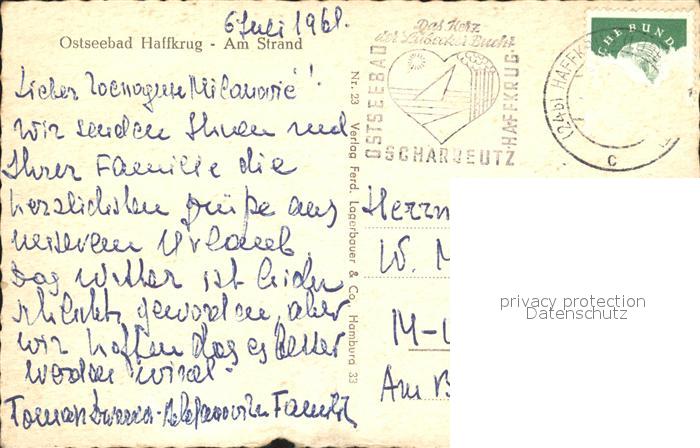 6 Juli 1961.
Ostseebad Haffkrug - Am Strand
Das Herz
der Lübecker Bucht
OSTSEEBAD
HAFFKRUG-
SCHARBEUTZ
CHE BUND
(24b) HAFFK
c
Lieber Milanović!
Wir senden Ihnen und
Ihrer Familie die
herzlichsten Grüße aus
unserem Urlaub
Das Wetter ist leider
schlecht geworden, aber
wir hoffen das es besser
werden wird.
Familie
Nr. 23 Verlag Ferd. Lagerbauer & Co. Hamburg 33
Herrn
W. M
M-
Am B
privacy protection
Datenschutz